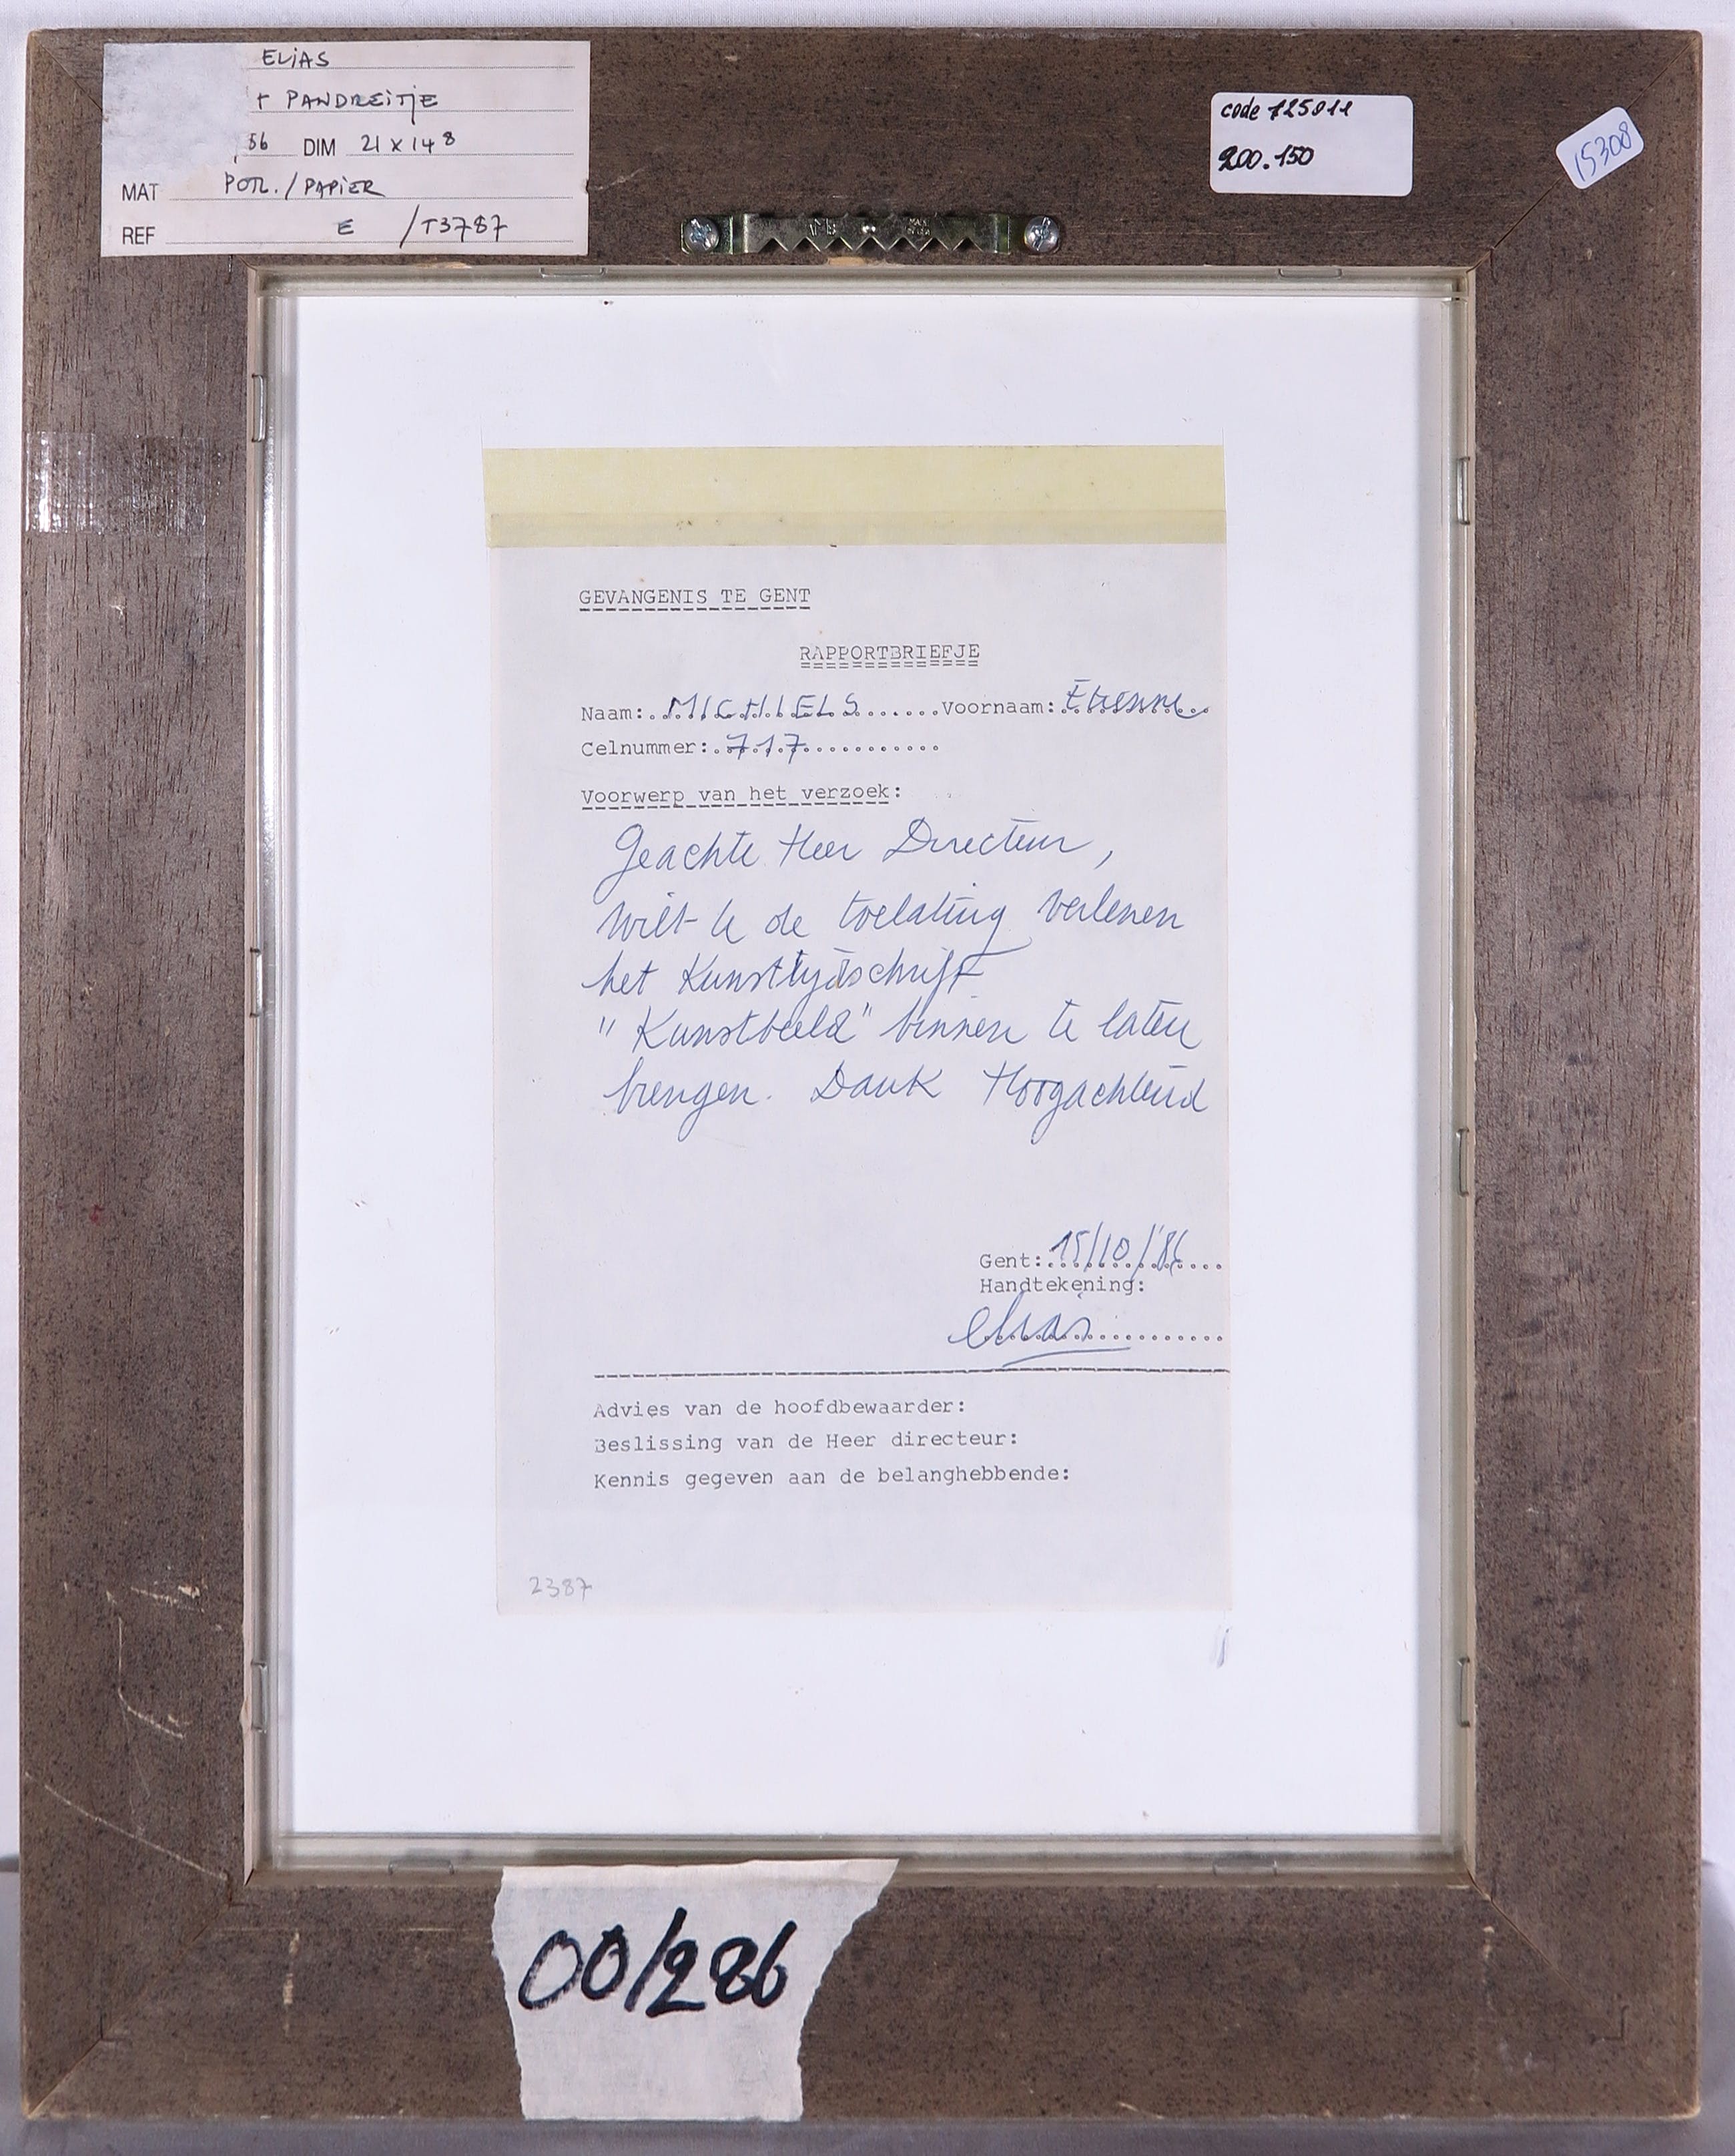 ELIAS
T PANDREITJE
56 DIM 21 X 14 8
MAT POTL. / PAPIER
REF E / T3787
code 125911
200.150
15308
GEVANGENIS TE GENT
RAPPORTBRIEFJE
Naam: MICHIELS Voornaam: Etienne
Celnummer: 717
Voorwerp van het verzoek:
Geachte Heer Directeur,
Wilt U de toelating verlenen
het Kunsttijdschrift
"Kunstbeeld" binnen te laten
brengen. Dank Hoogachtend
Gent: 15/10/'86
Handtekening:
elias
Advies van de hoofdbewaarder:
Beslissing van de Heer directeur:
Kennis gegeven aan de belanghebbende:
2387
00/286